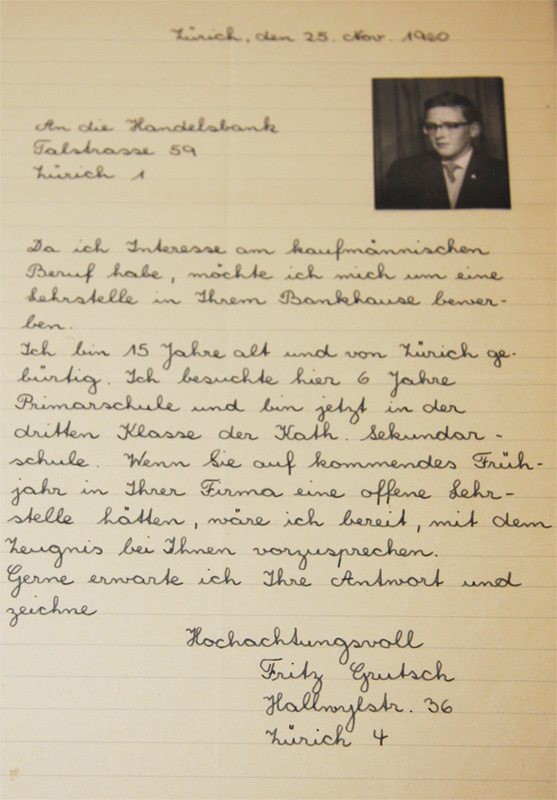 Zürich, den 25. Nov. 1960
An die Handelsbank
Talstrasse 59
Zürich 1
Da ich Interesse am kaufmännischen
Beruf habe, möchte ich mich um eine
Lehrstelle in Ihrem Bankhause bewer-
ben.
Ich bin 15 Jahre alt und von Zürich ge-
bürtig. Ich besuchte hier 6 Jahre
Primarschule und bin jetzt in der
dritten Klasse der Kath. Sekundar-
schule. Wenn Sie auf kommendes Früh-
jahr in Ihrer Firma eine offene Lehr-
stelle hätten, wäre ich bereit, mit dem
Zeugnis bei Ihnen vorzusprechen.
Gerne erwarte ich Ihre Antwort und
zeichne
Hochachtungsvoll
Fritz Grutsch
Hallwylstr. 36
Zürich 4